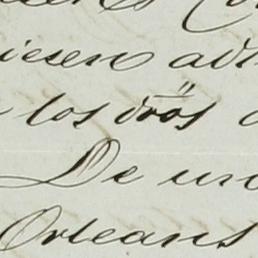 iesen ad
los dros
De un
Orleans